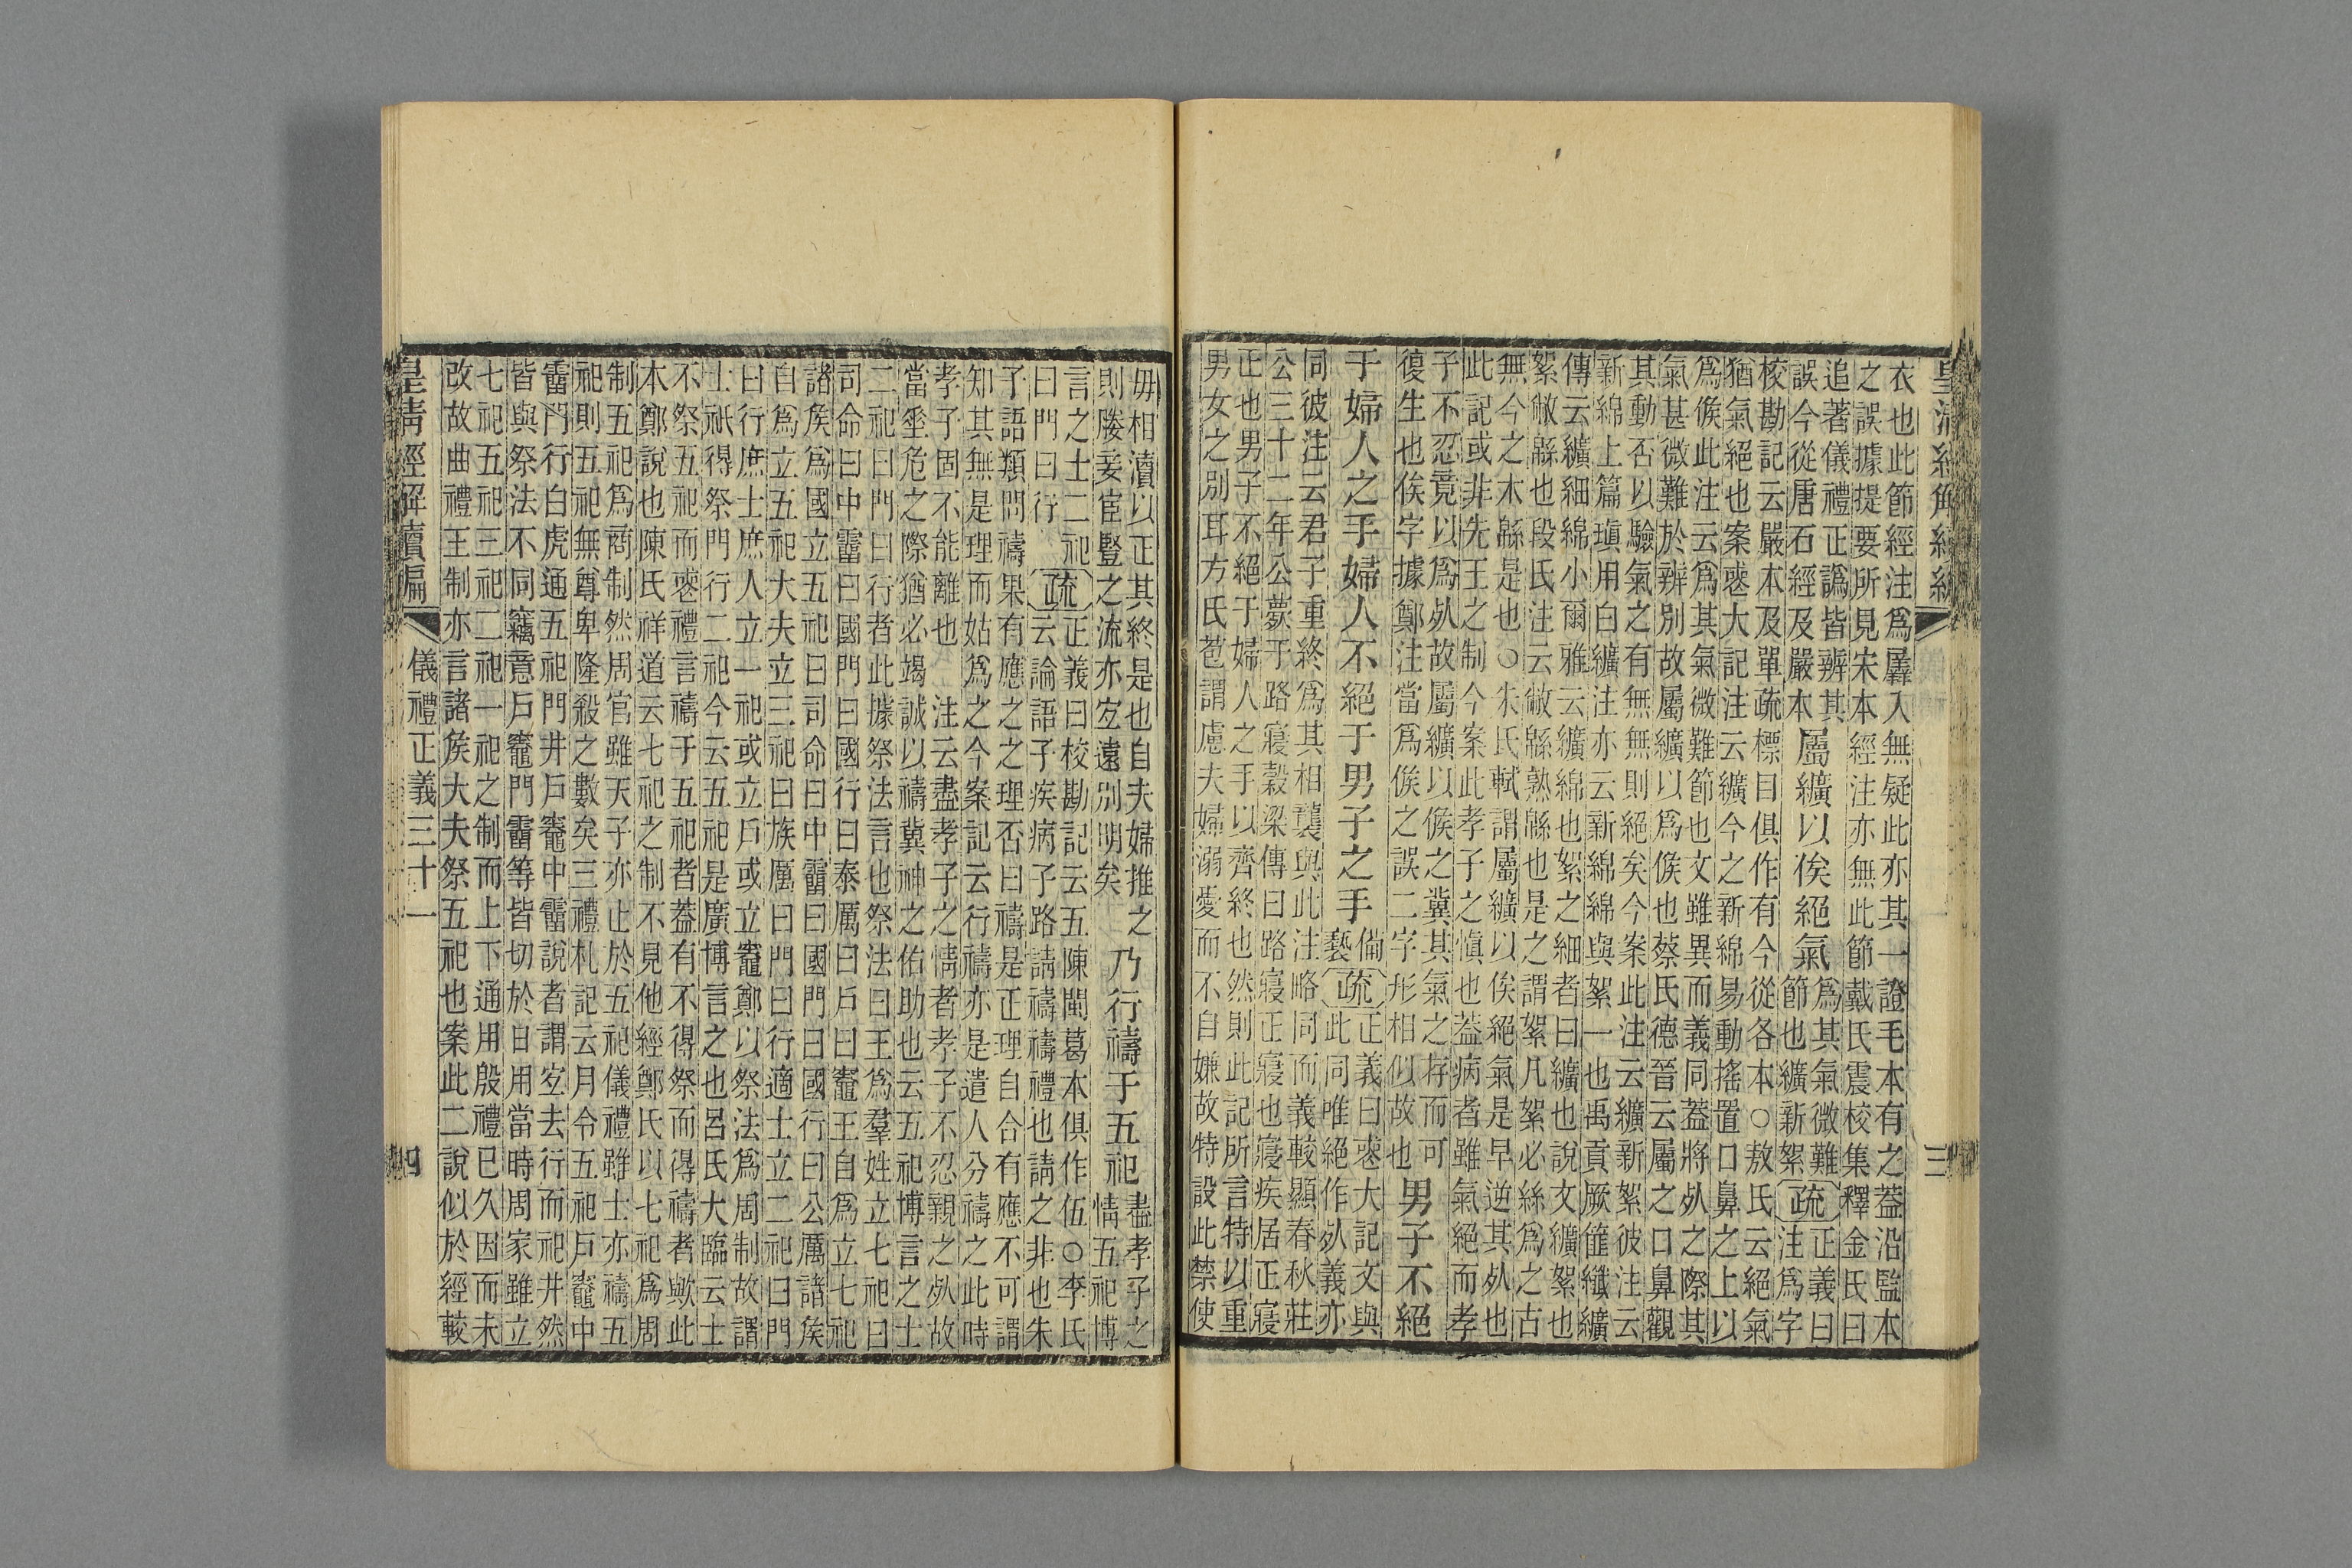 皇清經解續編
三
衣也此節經注爲羼入無疑此亦其一證毛本有之葢沿監本
之誤據提要所見宋本經注亦無此節戴氏震校集釋金氏曰
追著儀禮正譌皆辨其
誤今從唐石經及嚴本
屬纊以俟絕氣
爲其氣微難
節也纊新絮
疏
正義曰
注爲字
校勘記云嚴本及單疏標目俱作有今從各本○敖氏云絕氣
猶氣絕也案䘮大記注云纊今之新綿易動搖置口鼻之上以
爲候此注云爲其氣微難節也文雖異而義同葢將㱙之際其
氣甚微難於辨別故屬纊以爲候也蔡氏德晉云屬之口鼻觀
其動否以驗氣之有無無則絕矣今案此注云纊新絮彼注云
新綿上篇瑱用白纊注亦云新綿綿與絮一也禹貢厥篚纖纊
傳云纊細綿小爾雅云纊綿也絮之細者曰纊也說文纊絮也
絮敝緜也段氏注云敝緜熟緜也是之謂絮凡絮必絲爲之古
無今之木緜是也○朱氏軾謂屬纊以俟絕氣是早逆其㱙也
此記或非先王之制今案此孝子之愼也葢病者雖氣絕而孝
子不忍竟以爲㱙故屬纊以候之冀其氣之存而可
復生也俟字據鄭注當爲候之誤二字形相似故也
男子不絕
于婦人之手婦人不絕于男子之手
備
褻
疏
正義曰䘮大記文與
此同唯絕作㱙義亦
同彼注云君子重終爲其相褻與此注略同而義較顯春秋莊
公三十二年公薨于路寢穀梁傳曰路寢正寢也寢疾居正寢
正也男子不絕于婦人之手以齊終也然則此記所言特以重
男女之別耳方氏苞謂慮夫婦溺愛而不自嫌故特設此禁使
毋相瀆以正其終是也自夫婦推之
則勝妾宦豎之流亦宐遠別明矣
乃行禱于五祀
盡孝子之
情五祀博
言之士二祀
曰門曰行
疏
正義曰校勘記云五陳閩葛本俱作伍○李氏
云論語子疾病子路請禱禱禮也請之非也朱
子語類問禱果有應之之理否曰禱是正理自合有應不可謂
知其無是理而姑爲之今案記云行禱亦是遣人分禱之此時
孝子固不能離也　注云盡孝子之情者孝子不忍親之㱙故
當垂危之際猶必竭誠以禱冀神之佑助也云五祀博言之士
二祀曰門曰行者此據祭法言也祭法曰王爲羣姓立七祀曰
司命曰中霤曰國門曰國行曰泰厲曰戶曰竈王自爲立七祀
諸矦爲國立五祀曰司命曰中霤曰國門曰國行曰公厲諸矦
自爲立五祀大夫立三祀曰族厲曰門曰行適士立二祀曰門
曰行庶士庶人立一祀或立戶或立竈鄭以祭法爲周制故謂
士祇得祭門行二祀今云五祀是廣博言之也呂氏大臨云士
不祭五祀而䘮禮言禱于五祀者葢有不得祭而得禱者歟此
本鄭說也陳氏祥道云七祀之制不見他經鄭氏以七祀爲周
制五祀爲商制然周官雖天子亦止於五祀儀禮雖士亦禱五
祀則五祀無尊卑隆殺之數矣三禮札記云月令五祀戶竈中
霤門行白虎通五祀門井戶竈中霤說者謂宐去行而祀井然
皆與祭法不同竊意戶竈門霤等皆切於日用當時周家雖立
七祀五祀三祀二祀一祀之制而上下通用殷禮已久因而未
改故曲禮王制亦言諸矦大夫祭五祀也案此二說似於經較
皇清經解續編
儀禮正義三十一
四